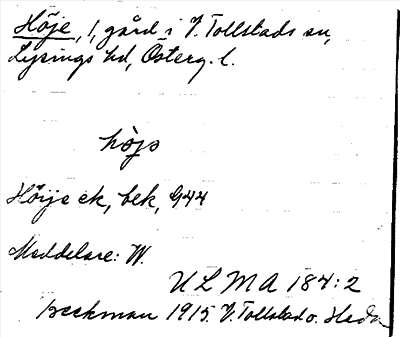 Höje, 1, gård i V. Tollstads sn,
Lysings hd, Österg. l.
hòjs
Höije ek, bek, G44
Meddelare: W.
ULMA 184:2
Beckman 1915. V. Tollstad o. Heda